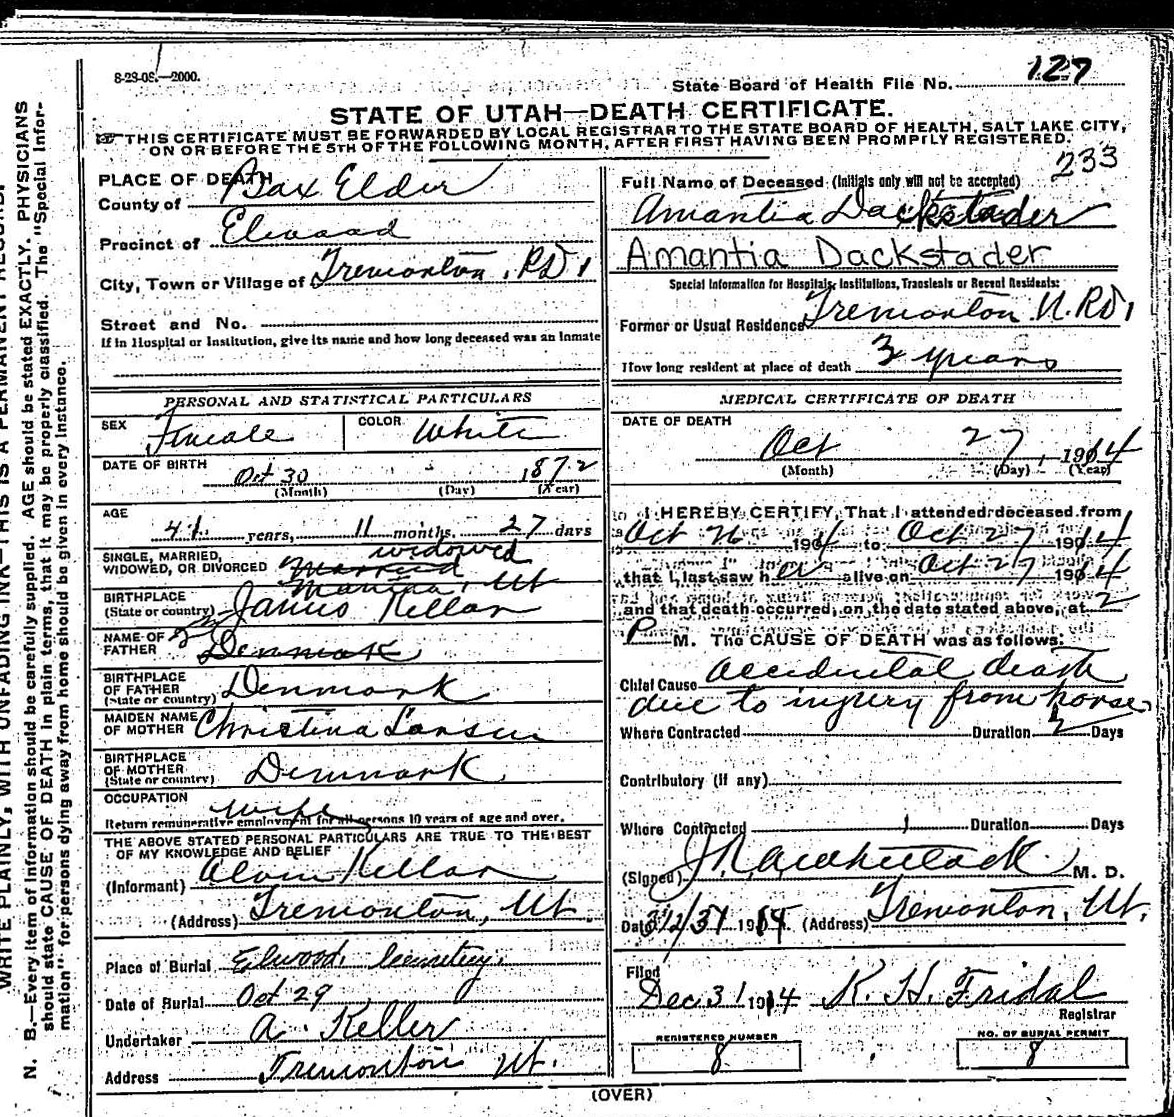 8-28-08.—2000.
State Board of Health File No. 127
STATE OF UTAH—DEATH CERTIFICATE.
☞ THIS CERTIFICATE MUST BE FORWARDED BY LOCAL REGISTRAR TO THE STATE BOARD OF HEALTH, SALT LAKE CITY,
ON OR BEFORE THE 5TH OF THE FOLLOWING MONTH, AFTER FIRST HAVING BEEN PROMPTLY REGISTERED.
233
PLACE OF DEATH
County of Box Elder
Precinct of Elwood
City, Town or Village of Tremonton, RD 1
Street and No.
If in Hospital or Institution, give its name and how long deceased was an inmate
Full Name of Deceased (Initials only will not be accepted)
Amantia Dackstader
Amantia Dackstader
Special Information for Hospitals, Institutions, Transients or Recent Residents:
Former or Usual Residence Tremonton U. RD 1
How long resident at place of death 3 years
PERSONAL AND STATISTICAL PARTICULARS
SEX Female COLOR White
DATE OF BIRTH Oct 30 1872
(Month) (Day) (Year)
AGE 41 years, 11 months, 27 days
SINGLE, MARRIED, widowed
WIDOWED, OR DIVORCED Married
Mantua, Ut
BIRTHPLACE
(State or country) James Kellar
NAME OF
FATHER Denmark
BIRTHPLACE
OF FATHER Denmark
(State or country)
MAIDEN NAME
OF MOTHER Christina Larsen
BIRTHPLACE
OF MOTHER Denmark
(State or country)
OCCUPATION Wife
Return remunerative employment for all persons 10 years of age and over.
THE ABOVE STATED PERSONAL PARTICULARS ARE TRUE TO THE BEST
OF MY KNOWLEDGE AND BELIEF
(Informant) Alvin Kellar
(Address) Tremonton, Ut.
Place of Burial Elwood Cemetery.
Date of Burial Oct 29
Undertaker A. Keller
Address Tremonton Ut.
MEDICAL CERTIFICATE OF DEATH
DATE OF DEATH
Oct 27, 1914
(Month) (Day) (Year)
I HEREBY CERTIFY, That I attended deceased from
Oct 26 1914 to Oct 27 1914
that I last saw her alive on Oct 27 1914
and that death occurred, on the date stated above, at 2
P M. The CAUSE OF DEATH was as follows:
Chief Cause accidental death
due to injury from horse
Where Contracted Duration Days
Contributory (if any)
Where Contracted Duration Days
(Signed) M. D.
Date 1914. (Address) Tremonton, Ut.
Filed
Dec. 31 1914 K. H. Fridal
Registrar
REGISTERED NUMBER
8
NO. OF BURIAL PERMIT
8
(OVER)
WRITE PLAINLY, WITH UNFADING INK—THIS IS A PERMANENT RECORD.
N. B.—Every item of information should be carefully supplied. AGE should be stated EXACTLY. PHYSICIANS
should state CAUSE OF DEATH in plain terms, that it may be properly classified. The "Special Infor-
mation" for persons dying away from home should be given in every instance.